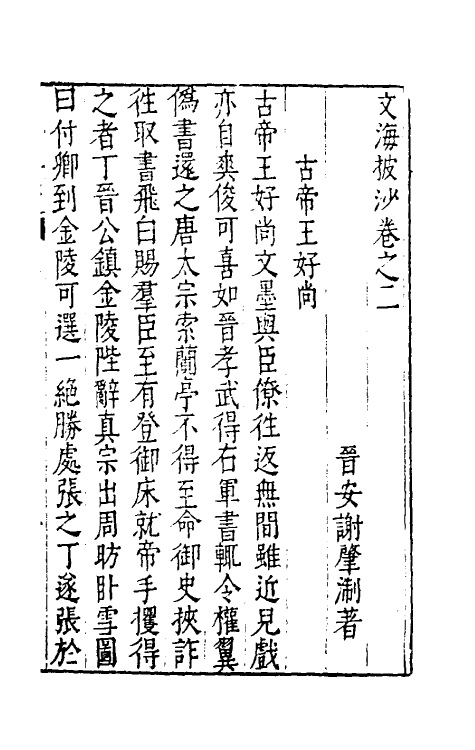 文海披沙卷之二
晉安謝肇淛著
古帝王好尚
古帝王好尚文墨與臣僚徃返無間雖近兒戲
亦自爽俊可喜如晉孝武得右軍書輒令權翼
僞書還之唐太宗索蘭亭不得至命御史挾詐
徃取書飛白賜羣臣至有登御床就帝手攫得
之者丁晉公鎮金陵陛辭真宗出周昉臥雪圖
曰付卿到金陵可選一絶勝處張之丁遂張於